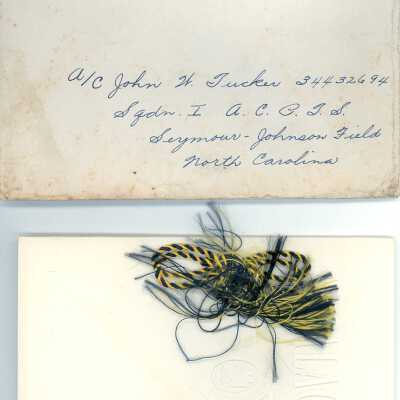 A/C John W. Tucker 34432694
Sqdn. I A. C. P. T. S.
Seymour-Johnson Field
North Carolina